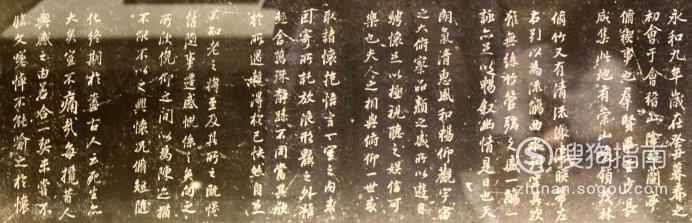 永和九年歲在癸丑暮春之
初會于會稽山陰之蘭亭
脩禊事也羣賢畢至少長
咸集此地有崇山峻領茂林
脩竹又有清流激湍暎帶左
右引以為流觴曲水列坐其次
雖無絲竹管弦之盛一觴一
詠亦足以暢敘幽情是日也天
朗氣清惠風和暢仰觀宇宙
之大俯察品類之盛所以遊目
騁懷足以極視聽之娛信可
樂也夫人之相與俯仰一世或
取諸懷抱悟言一室之內或
因寄所託放浪形骸之外雖
趣舍萬殊靜躁不同當其欣
於所遇暫得於己怏然自足
不知老之將至及其所之既惓
情隨事遷感慨係之矣向之
所欣俛仰之間以為陳迹猶
不能不以之興懷況脩短隨
化終期於盡古人云死生亦
大矣豈不痛哉每攬昔人
興感之由若合一契未嘗不
臨文嗟悼不能喻之於懷
搜狗指南
zhinan.sogou.com